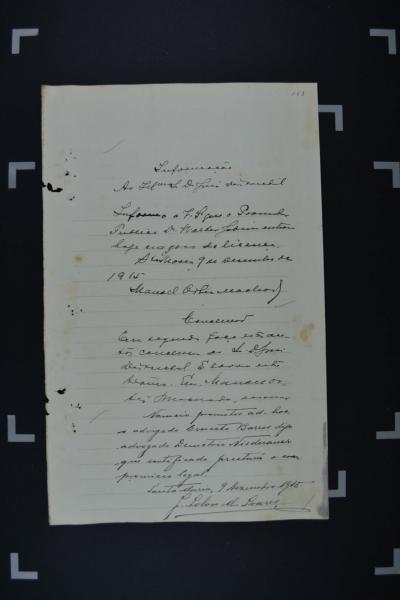 Informação
Ao Ilmo Sr Dr Juiz districtal
Informo a V. S. que o Promotor
Publico Dr. Walter Jobim entrou
hoje em goso de licença.
Sta Maria 9 de Dezembro de
1915
Manoel Ortiz Machado
Conclusão
Em seguida faço estes au-
tos conclusos ao Sr Dr Juiz
Districtal. E lavro este
termo. Eu, Manoel Or-
tiz Machado, escrevi
Nomeio promotor ad-hoc
o advogado Ernesto Barros
advogado
que notificado prestará o com-
promisso legal.
Santa Maria, 9 Dezembro 1915
Soares